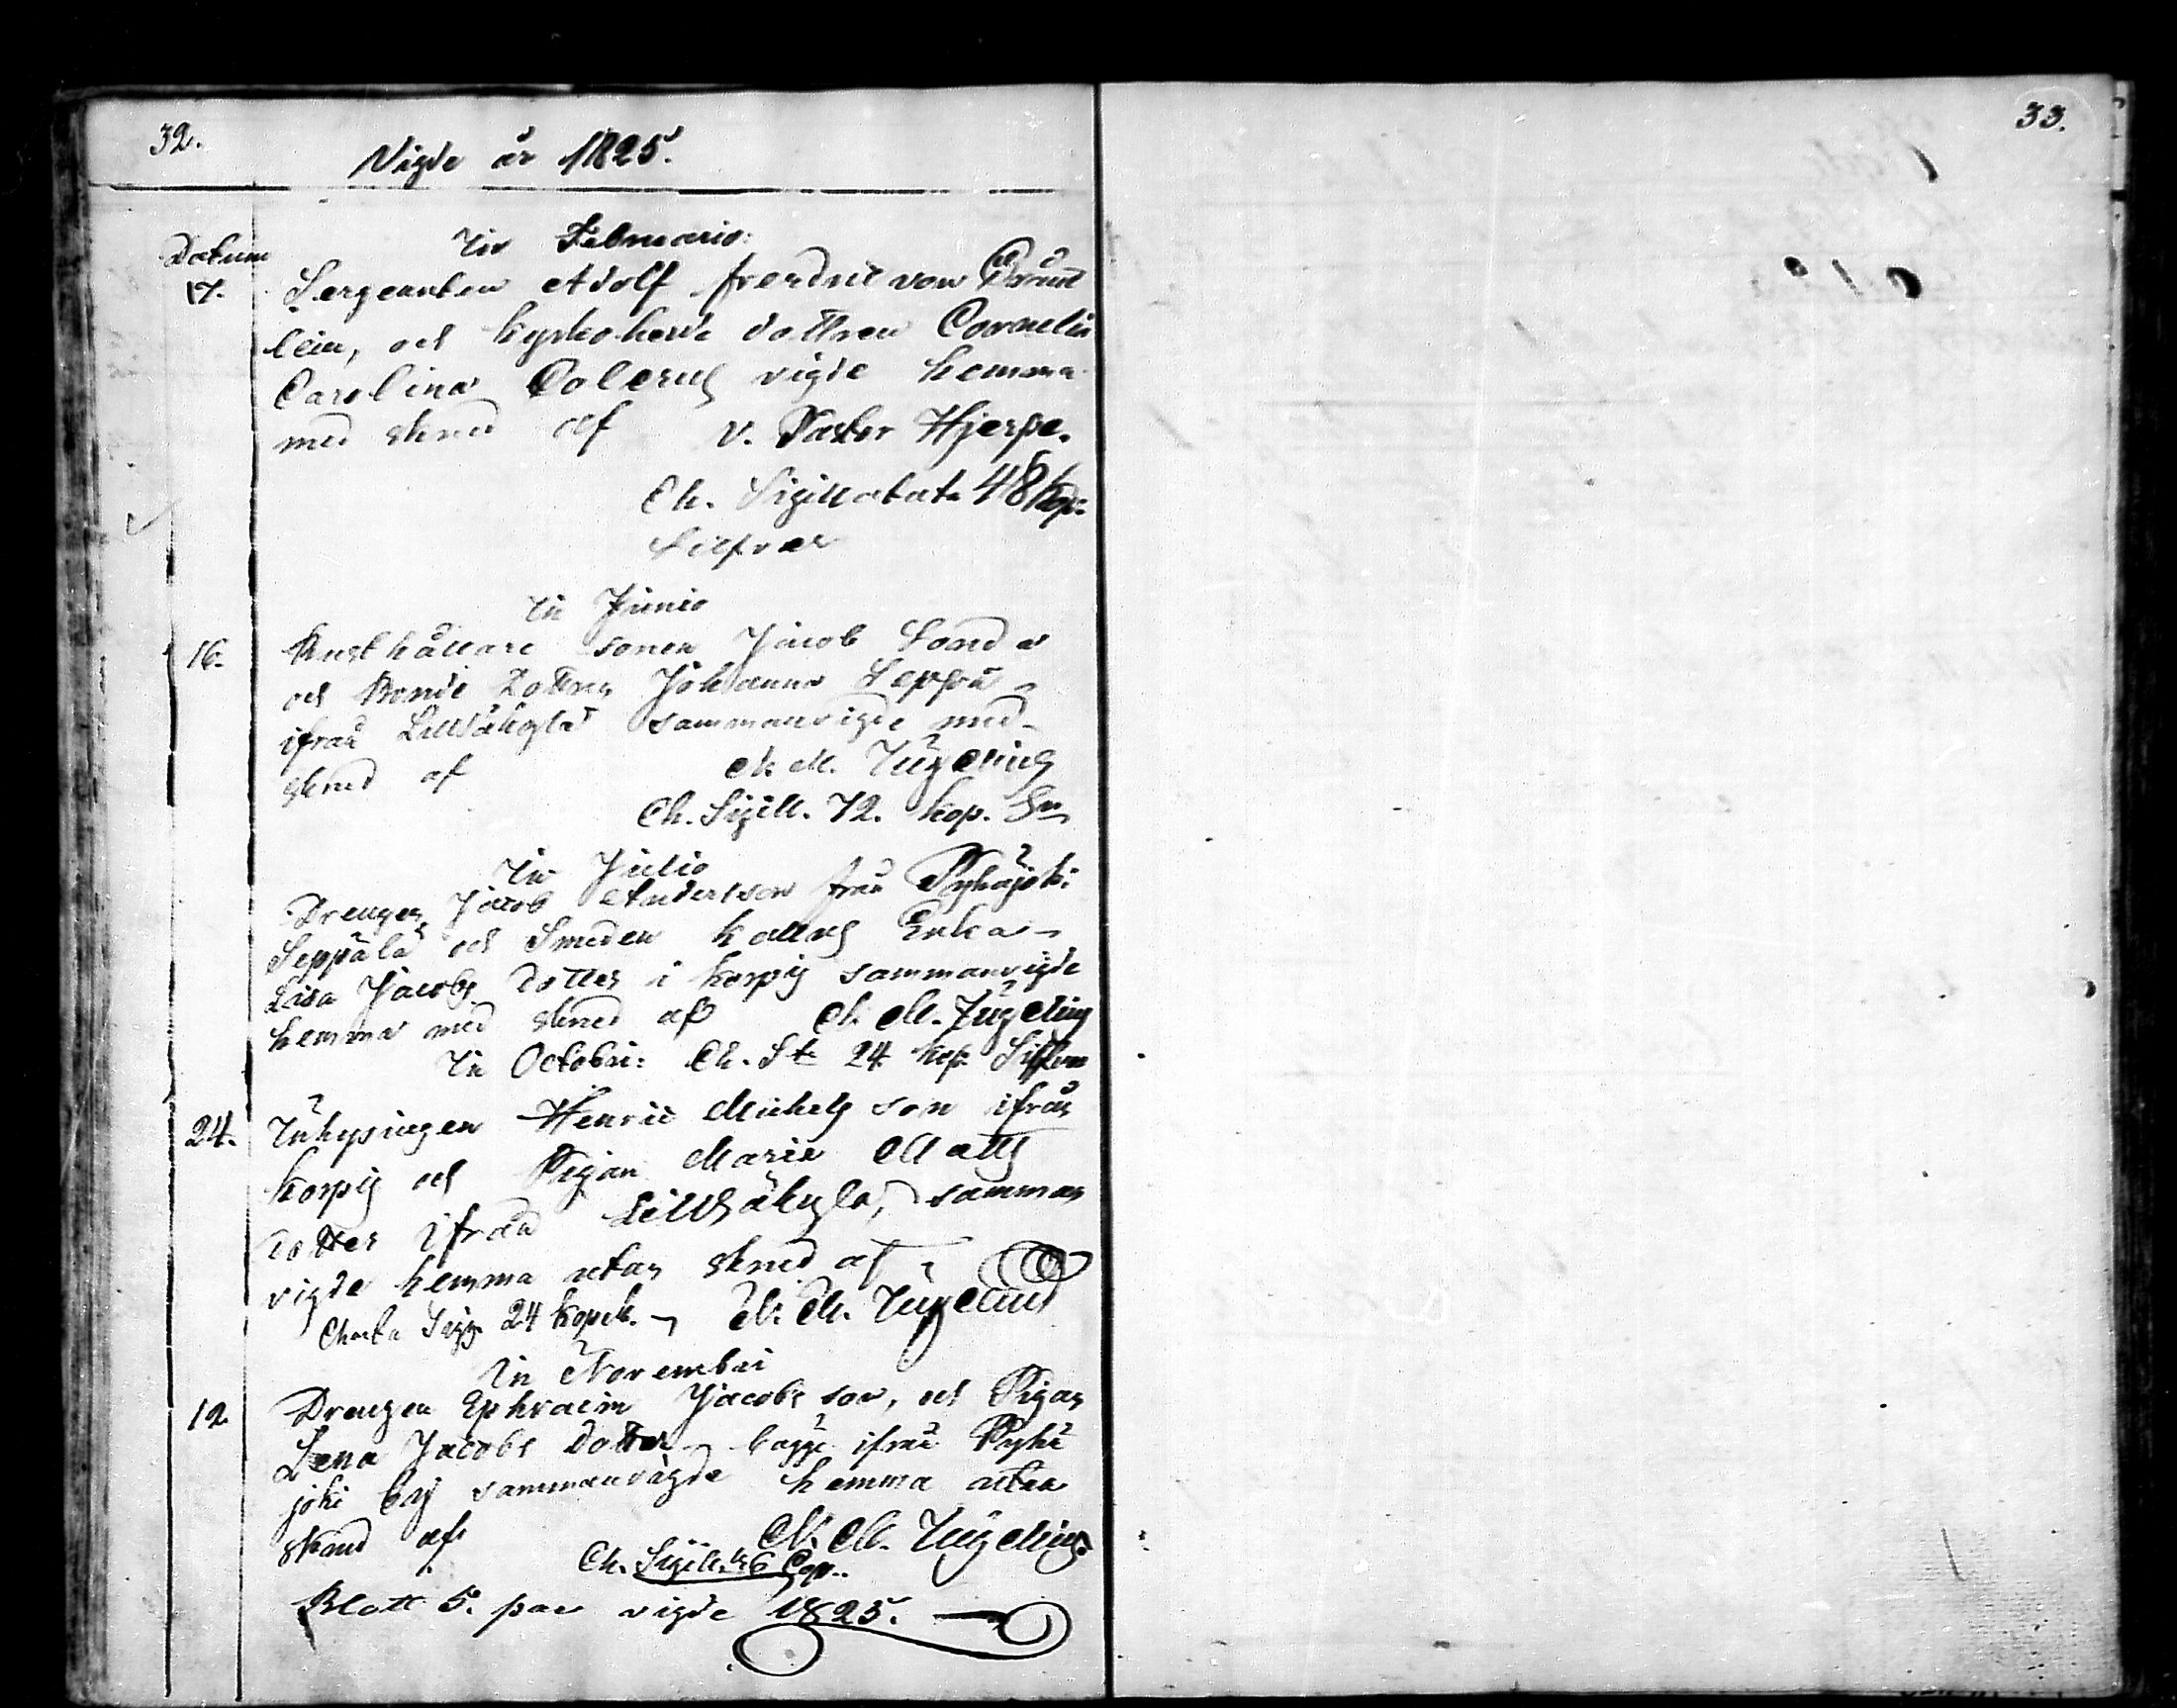 32.
Vigde år 1825.
33.
Datum
In Februario:
17. Sergeanten Adolf fredric von
lein, och kyrkoherde dottren Cornelia
Carolina Colerus vigde hemma
med skrud af v. Pastor Hjerpe.
Ch. Sigillatate 48 kop:
Silfver
In Junio
16. Rusthållare sonen Jacob
och Bonde Dottren Johanna
ifrån Lillsäkylä sammanvigde med
skrud af M. Ingelius
Ch. Sigill. 72. kop. Sr
In Julio
Drengen Jacob Anderson från Pyhäjoki
Seppälä och Smeden Enka
Lisa Jacobs dotter i korpis sammanvigde
hemma med skrud af M. Ingelius
In Octobri: Ch. St 24 kop Silfver
24. Inhysingen Henric Michels son ifrån
korpis och Pigan Maria Matts
dotter ifrån Lillsäkylä, samman
vigde hemma utan skrud af
Charta Sigg 24 kopek. M. Ingelius
In Novembri
12. Drengen Ephraim Jacobs son, och Pigan
Lena Jacobs Dotter bagge ifrån Pyhä
joki by sammanvigde hemma utan
skrud af M. Ingelius
Ch. Sigill. Cop..
Blott 5. par vigde 1825.